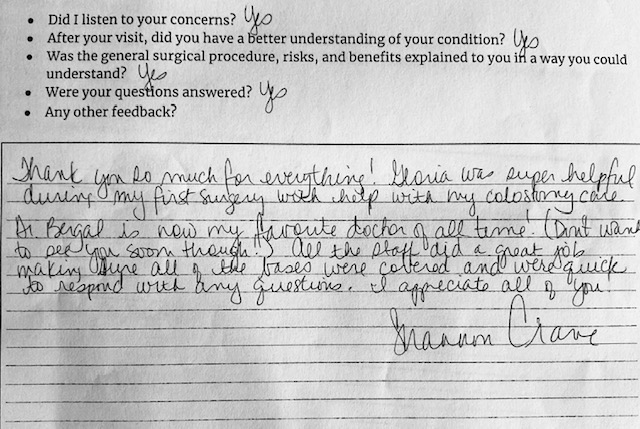 • Did I listen to your concerns? Yes
• After your visit, did you have a better understanding of your condition? Yes
• Was the general surgical procedure, risks, and benefits explained to you in a way you could
understand? Yes
• Were your questions answered? Yes
• Any other feedback?
Thank you so much for everything! Gloria was super helpful
during my first surgery with help with my colostomy care.
Dr Bergal is now my favorite doctor of all time! (Don't want
to see you soon though!) All the staff did a great job
making sure all of the bases were covered and were quick
to respond with any questions. I appreciate all of you
Shannon